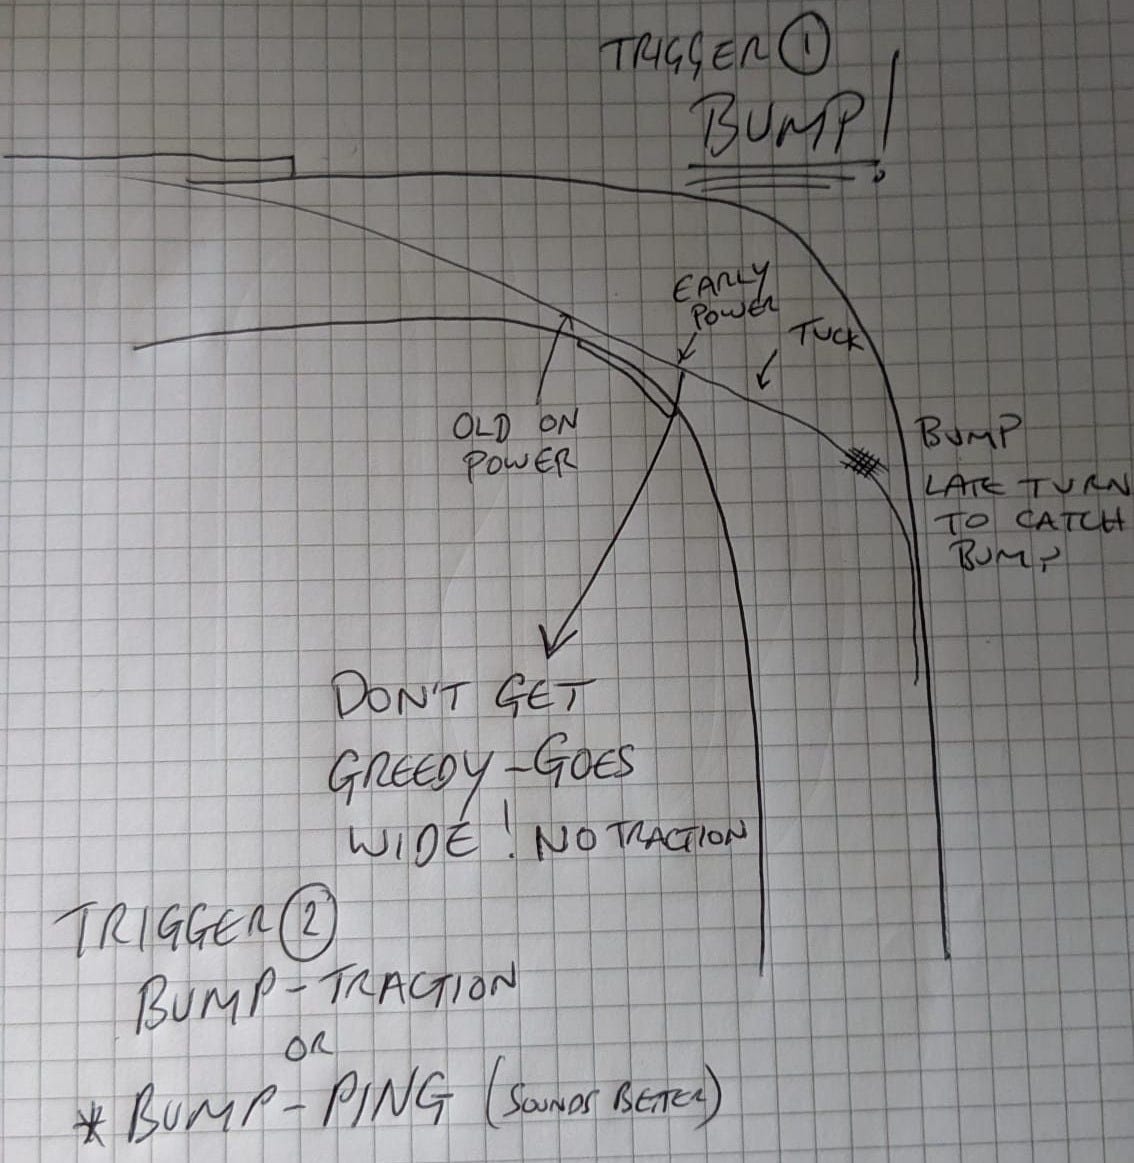 TRIGGER ①
BUMP!
EARLY
POWER
TUCK
OLD ON
POWER
BUMP
LATE TURN
TO CATCH
BUMP
DON'T GET
GREEDY - GOES
WIDE! NO TRACTION
TRIGGER ②
BUMP - TRACTION
OR
* BUMP - PING (SOUNDS BETTER)